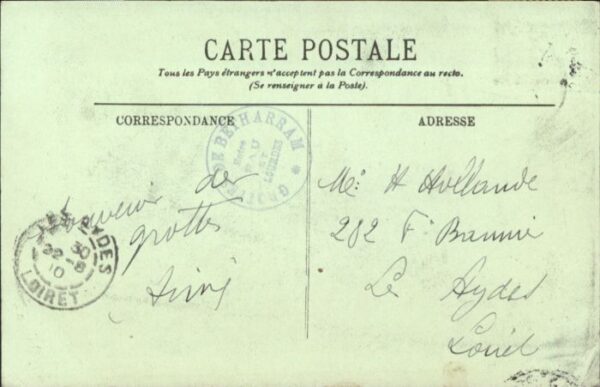 CARTE POSTALE
Tous les Pays étrangers n'acceptent pas la Correspondance au recto.
(Se renseigner a la Poste).
CORRESPONDANCE
ADRESSE
GROTTES DE BETHARRAM
Entre
PAU
ET
LOURDES
de
grottes
Aimé
LES AYDES
22-8
10
LOIRET
M. H Hollande
282 F. Bannier
Les Aydes
Loiret